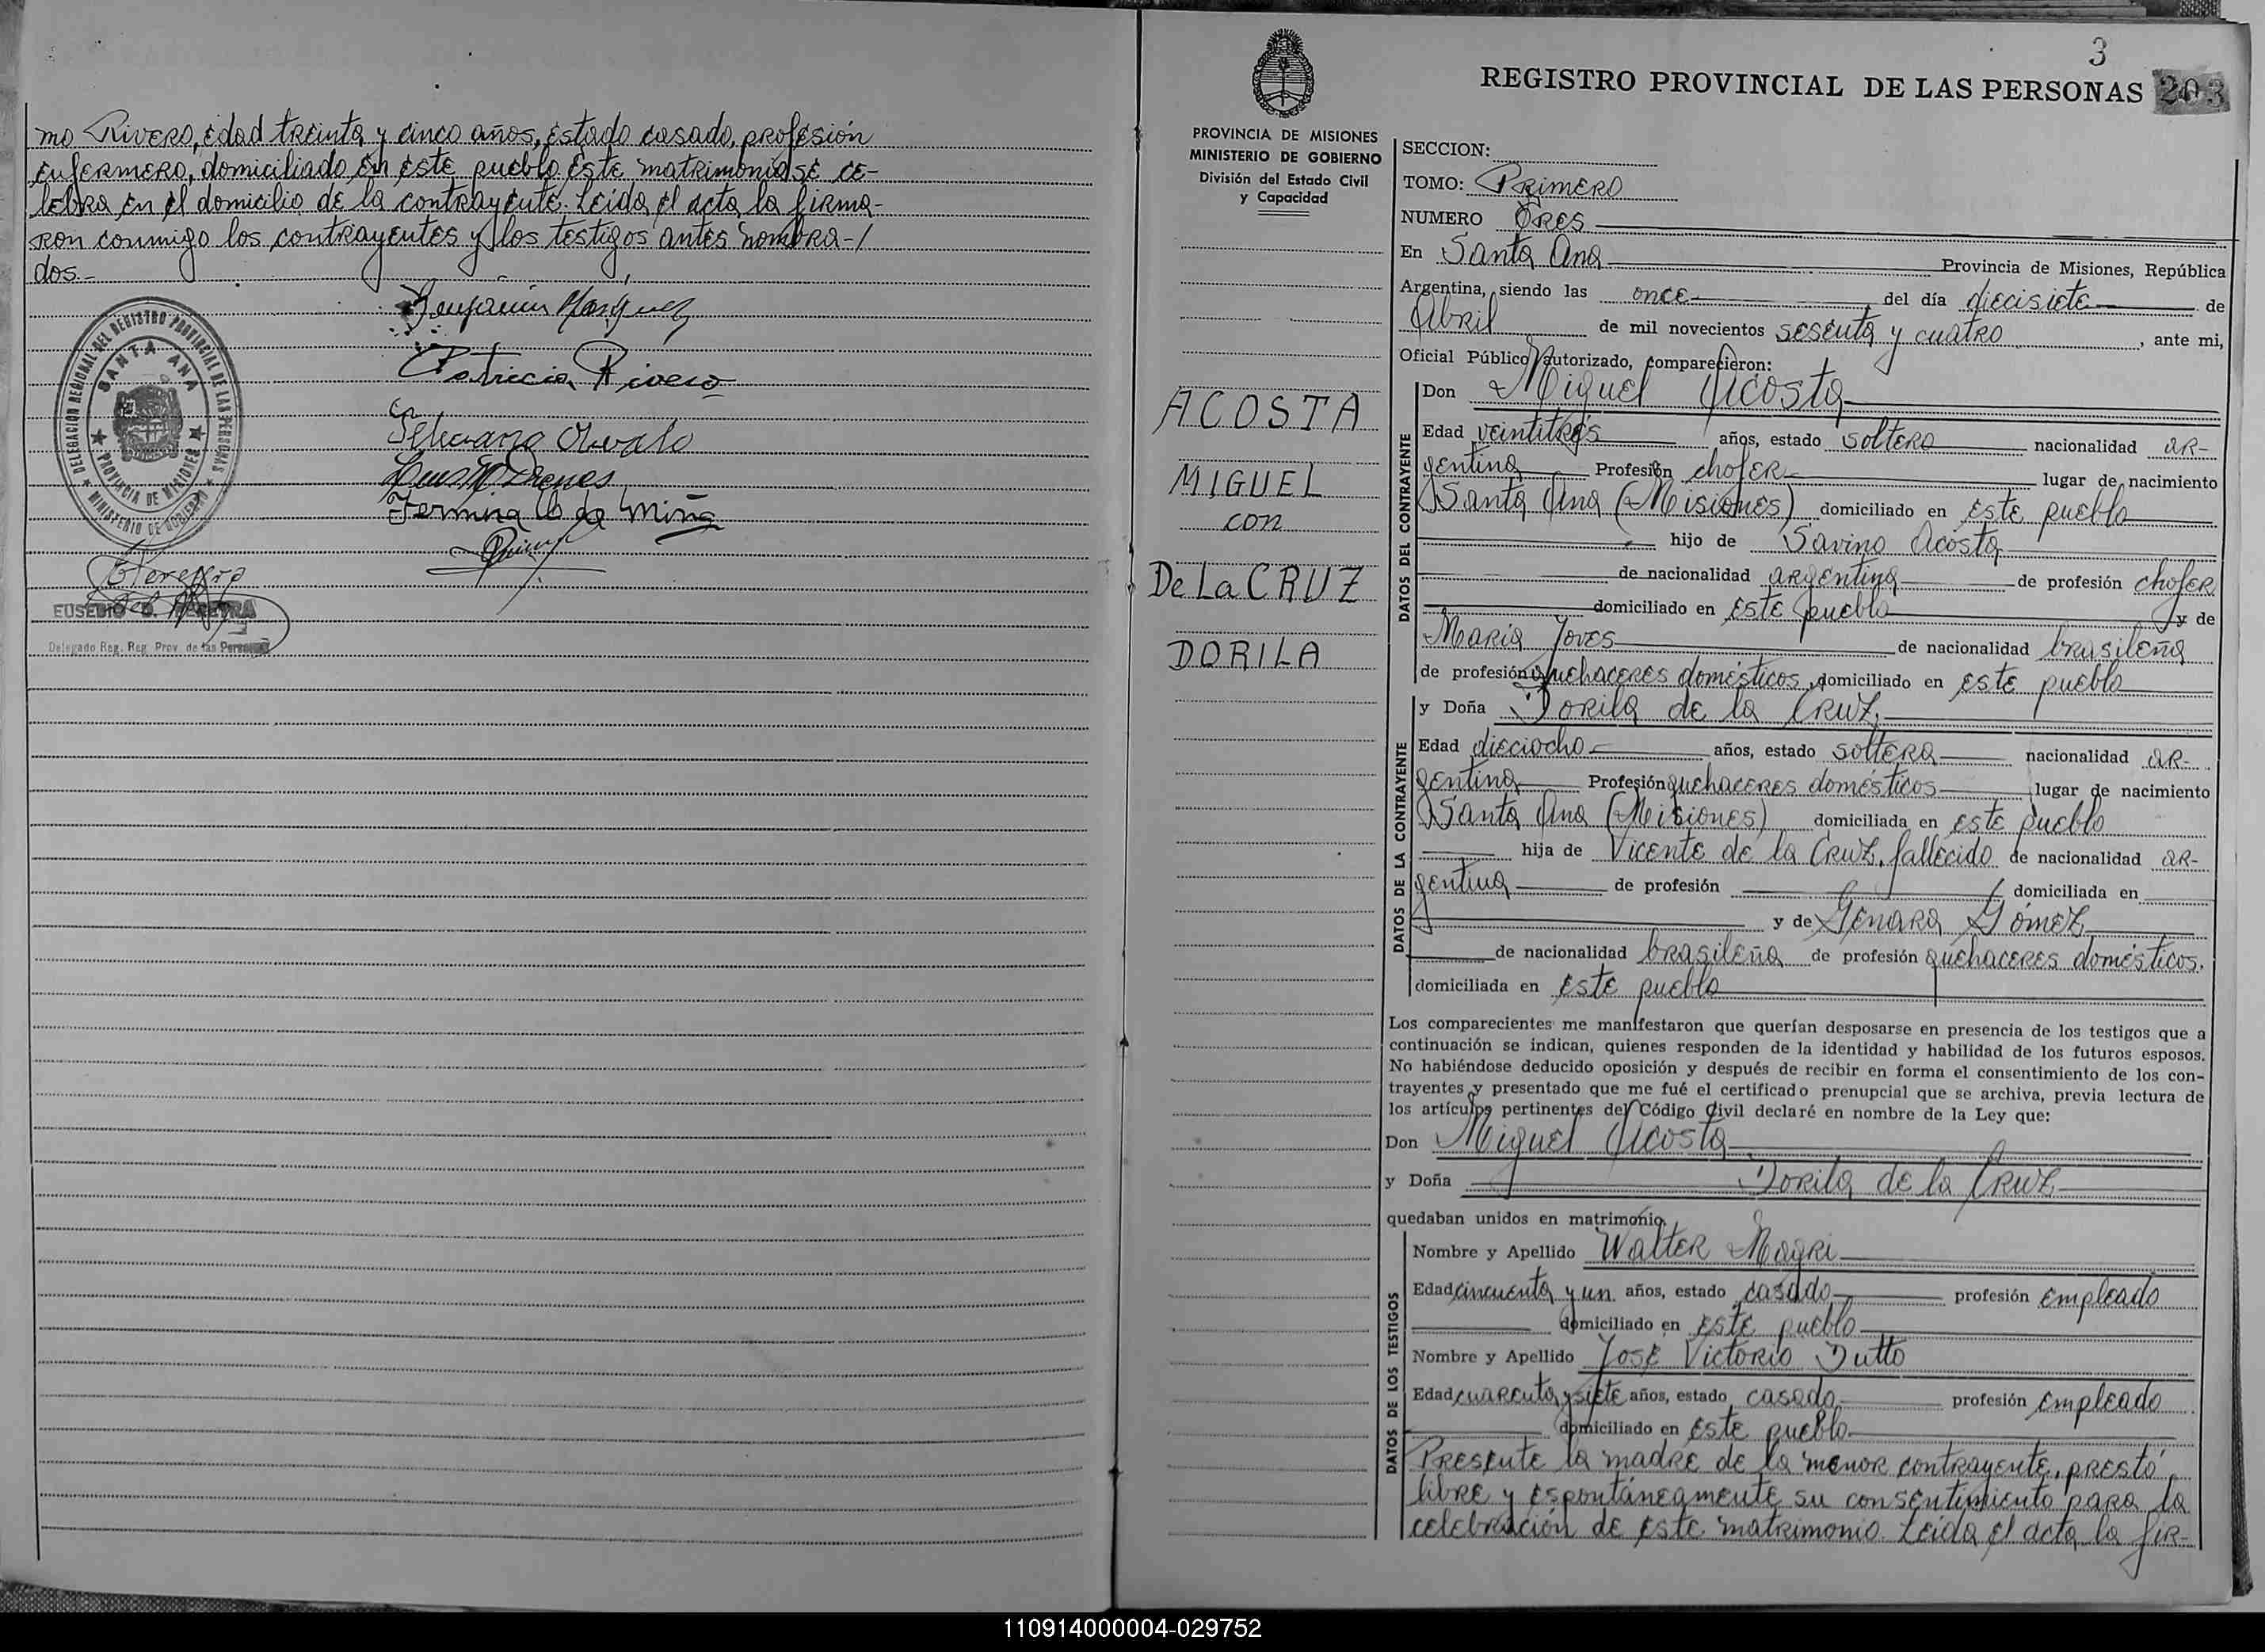 mo Rivero, edad treinta y cinco años, estado casado, profesión
enfermero, domiciliado en este pueblo. Este matrimonio se ce-
lebra en el domicilio de la contrayente. Leída el acta la firma-
ron conmigo los contrayentes y los testigos antes nombra-/
dos.-
Patricia Rivero
DELEGACIÓN REGIONAL DEL REGISTRO PROVINCIAL DE LAS PERSONAS
SANTA ANA
PROVINCIA DE MISIONES
MINISTERIO DE GOBIERNO
EUSEBIO
Delegado Reg. Reg. Prov. de las Personas
3
REGISTRO PROVINCIAL DE LAS PERSONAS 203
PROVINCIA DE MISIONES
MINISTERIO DE GOBIERNO
División del Estado Civil
y Capacidad
ACOSTA
MIGUEL
con
De La CRUZ
DORILA
SECCION:
TOMO: Primero
NUMERO Tres
En Santa Ana Provincia de Misiones, República
Argentina, siendo las once del día diecisiete de
Abril de mil novecientos sesenta y cuatro, ante mi,
Oficial Público autorizado, comparecieron:
DATOS DEL CONTRAYENTE
Don Miguel Acosta
Edad veintitrés años, estado soltero nacionalidad ar-
gentina Profesión chofer lugar de nacimiento
Santa Ana (Misiones) domiciliado en este pueblo
hijo de Savino Acosta
de nacionalidad argentina de profesión chofer
domiciliado en este pueblo y de
María Joves de nacionalidad brasileña
de profesión quehaceres domésticos, domiciliado en este pueblo
DATOS DE LA CONTRAYENTE
y Doña Dorila de la Cruz,
Edad dieciocho años, estado soltera nacionalidad ar-
gentina Profesión quehaceres domésticos lugar de nacimiento
Santa Ana (Misiones) domiciliada en este pueblo
hija de Vicente de la Cruz, fallecido de nacionalidad ar-
gentina de profesión domiciliada en
y de Genara Gómez
de nacionalidad brasileña de profesión quehaceres domésticos.
domiciliada en este pueblo
Los comparecientes me manifestaron que querían desposarse en presencia de los testigos que a
continuación se indican, quienes responden de la identidad y habilidad de los futuros esposos.
No habiéndose deducido oposición y después de recibir en forma el consentimiento de los con-
trayentes y presentado que me fué el certificado prenupcial que se archiva, previa lectura de
los artículos pertinentes del Código Civil declaré en nombre de la Ley que:
Don Miguel Acosta
y Doña Dorila de la Cruz
quedaban unidos en matrimonio.
DATOS DE LOS TESTIGOS
Nombre y Apellido Walter Magri
Edad cincuenta y un años, estado casado profesión empleado
domiciliado en este pueblo
Nombre y Apellido José Victorio Dutto
Edad cuarenta y siete años, estado casado profesión empleado
domiciliado en este pueblo
Presente la madre de la menor contrayente, prestó
libre y espontáneamente su consentimiento para la
celebración de este matrimonio. Leída el acta la fir-
110914000004-029752